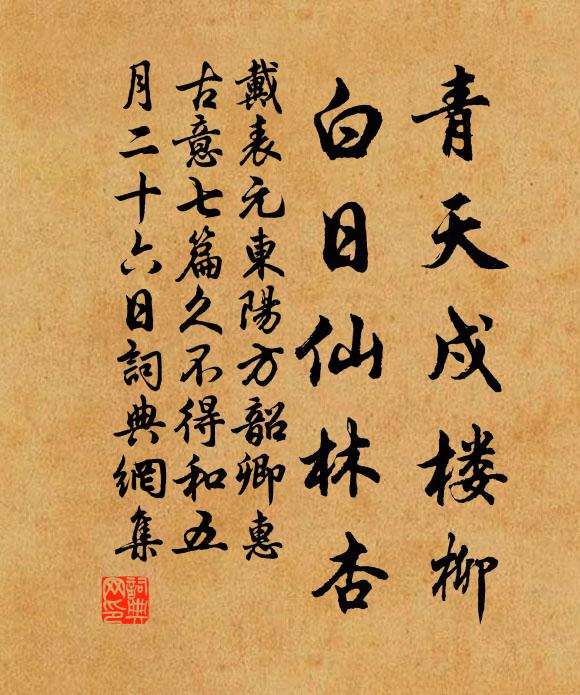 青天戍楼柳
白日仙林杏
戴表元東陽方韶卿惠
古意七篇久不得和五
月二十六日詞典網集
詞典
网印